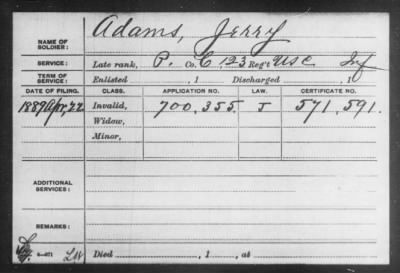 Adams, Jerry
NAME OF SOLDIER:
SERVICE: Late rank, P. Co. C, 123 Reg't USC Inf
TERM OF SERVICE: Enlisted , 1 Discharged , 1
DATE OF FILING. CLASS. APPLICATION NO. LAW. CERTIFICATE NO.
1889 Apr, 22 Invalid, 700.355 J 571.591.
Widow,
Minor,
ADDITIONAL SERVICES:
REMARKS:
6—071
Died , 1 , at